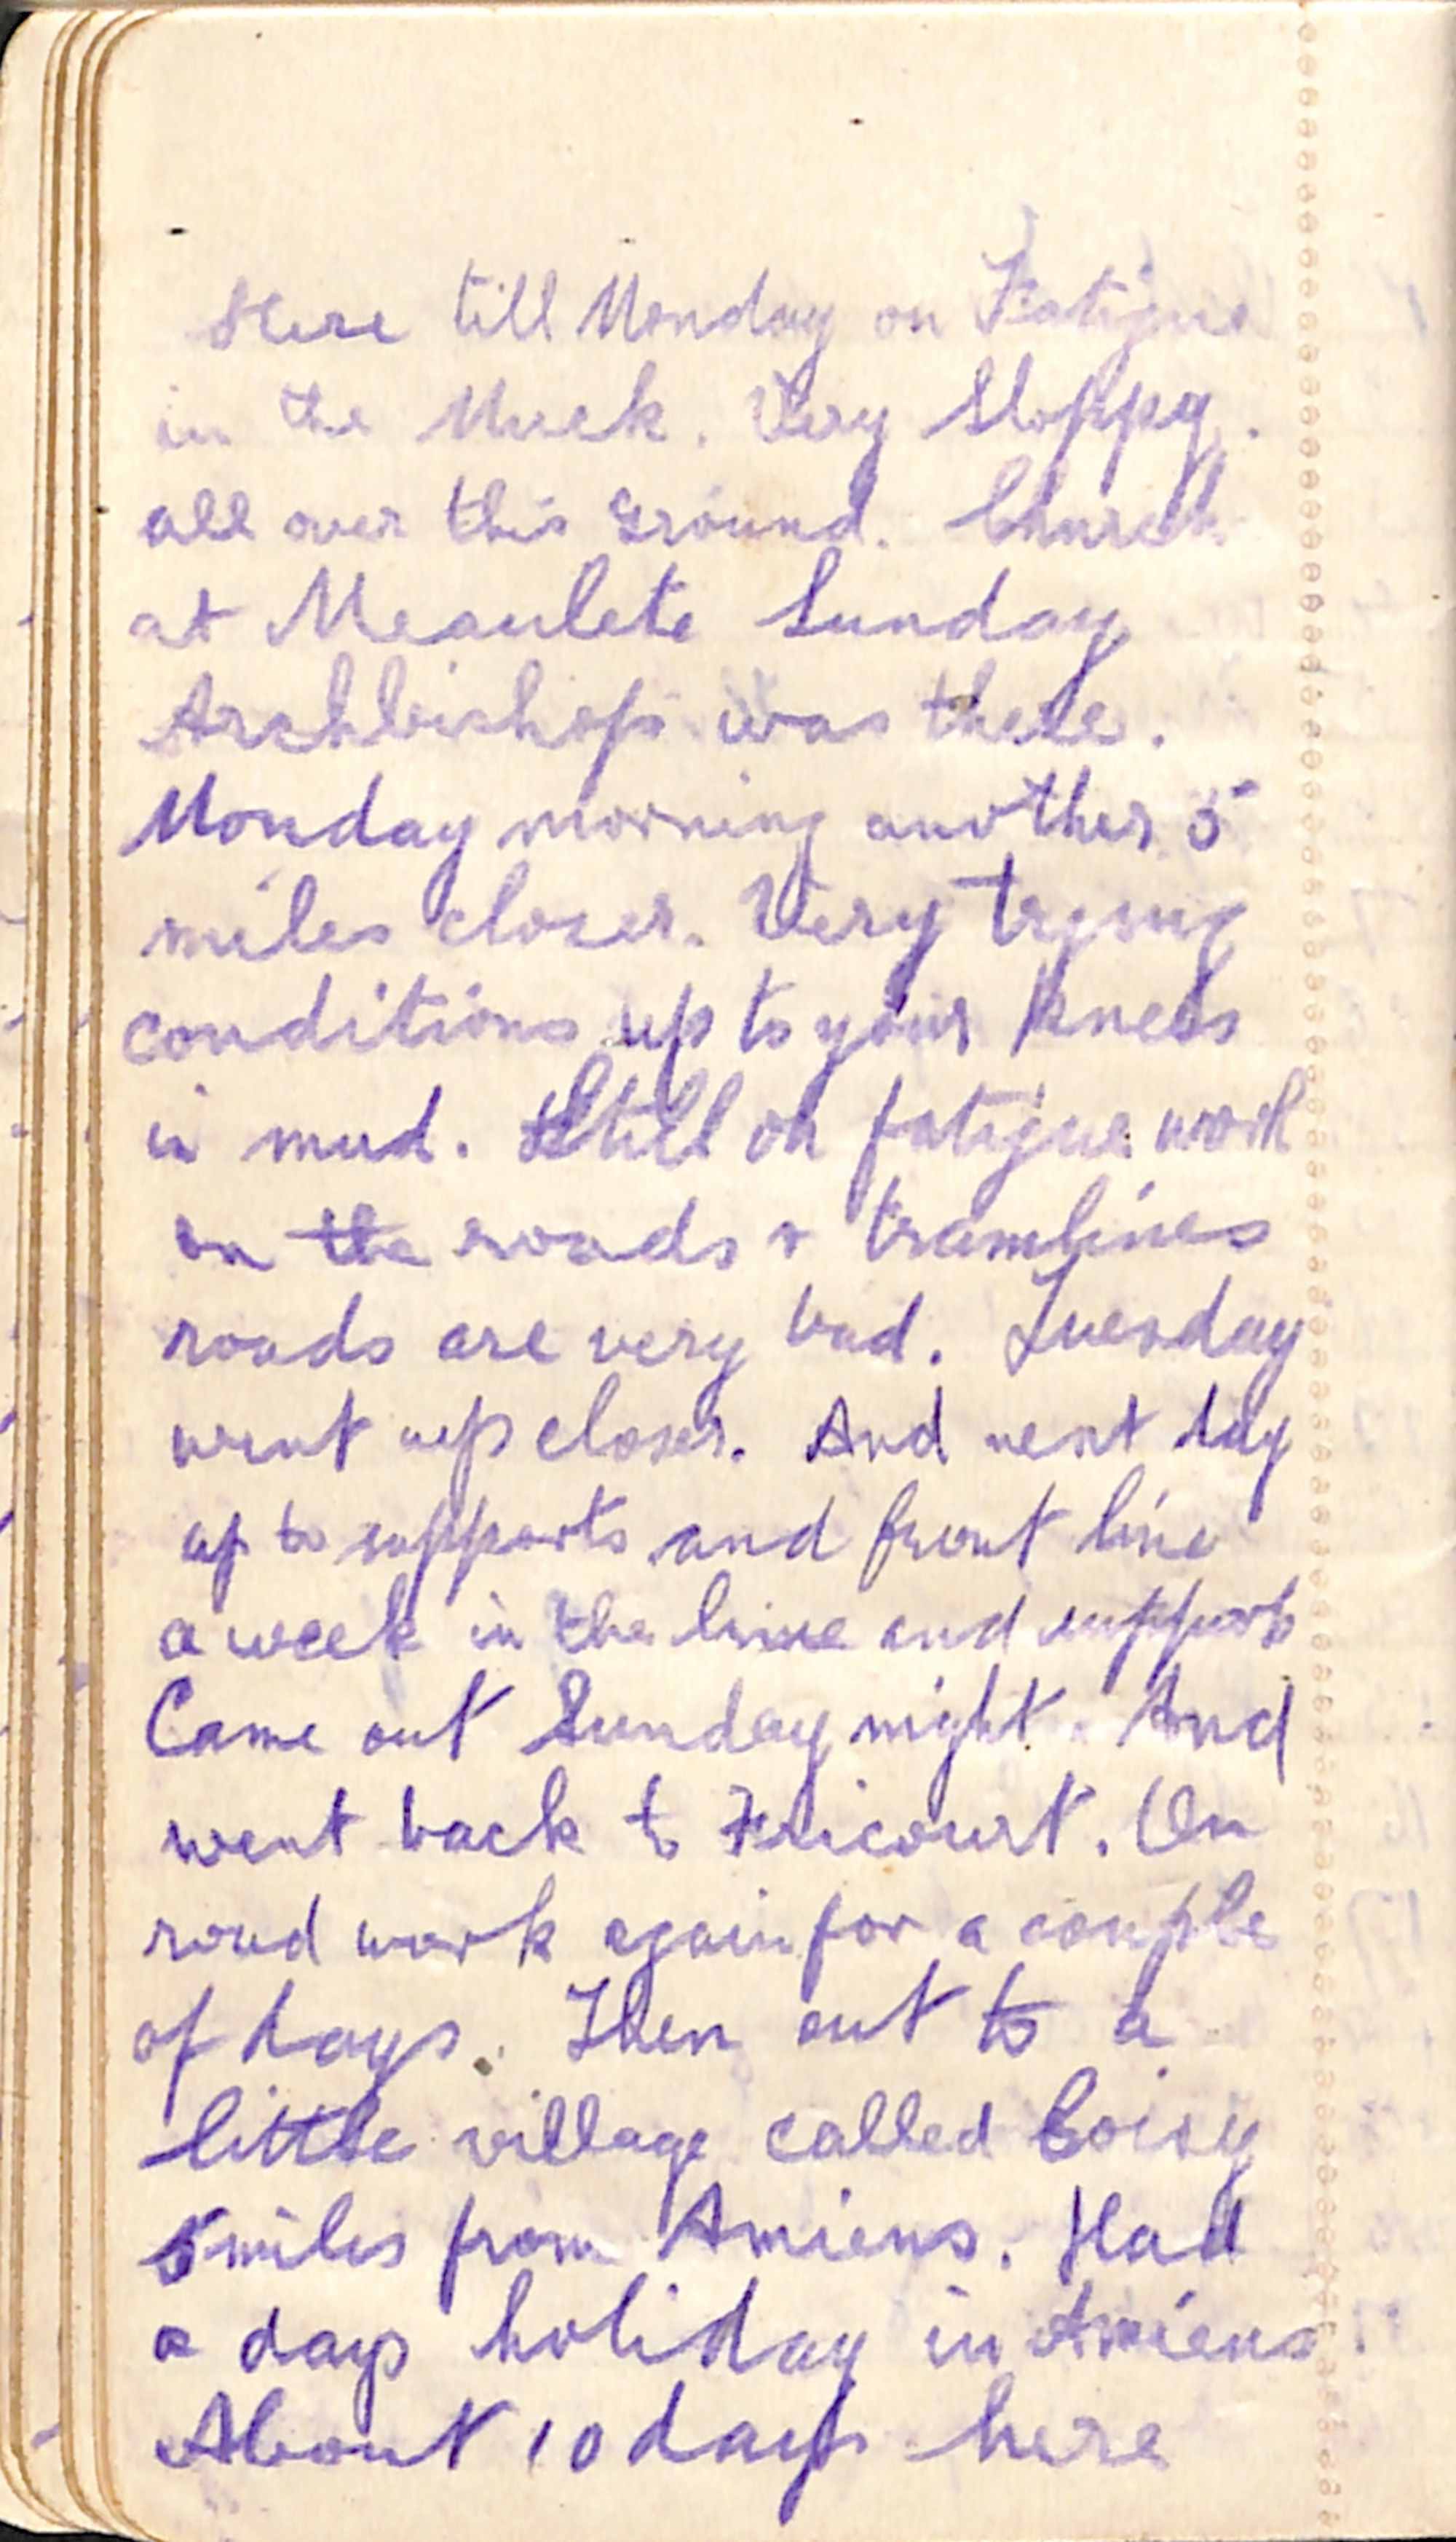 Here till Monday on Fatigue
in the Muck. Very Sloppy.
all over this ground. Church
at Meaulete Sunday
Archbishop was there.
Monday morning another 5
miles closer. Very trying
conditions up to your knees
in mud. Still on fatigue work
on the roads & tramlines
roads are very bad. Tuesday
went up closer. And next day
up to supports and front line
a week in the line and supports
Came out Sunday night. And
went back to Fricourt. On
road work again for a couple
of days. Then out to a
little village called Coisy
5 miles from Amiens. Had
a days holiday in Amiens.
About 10 days here